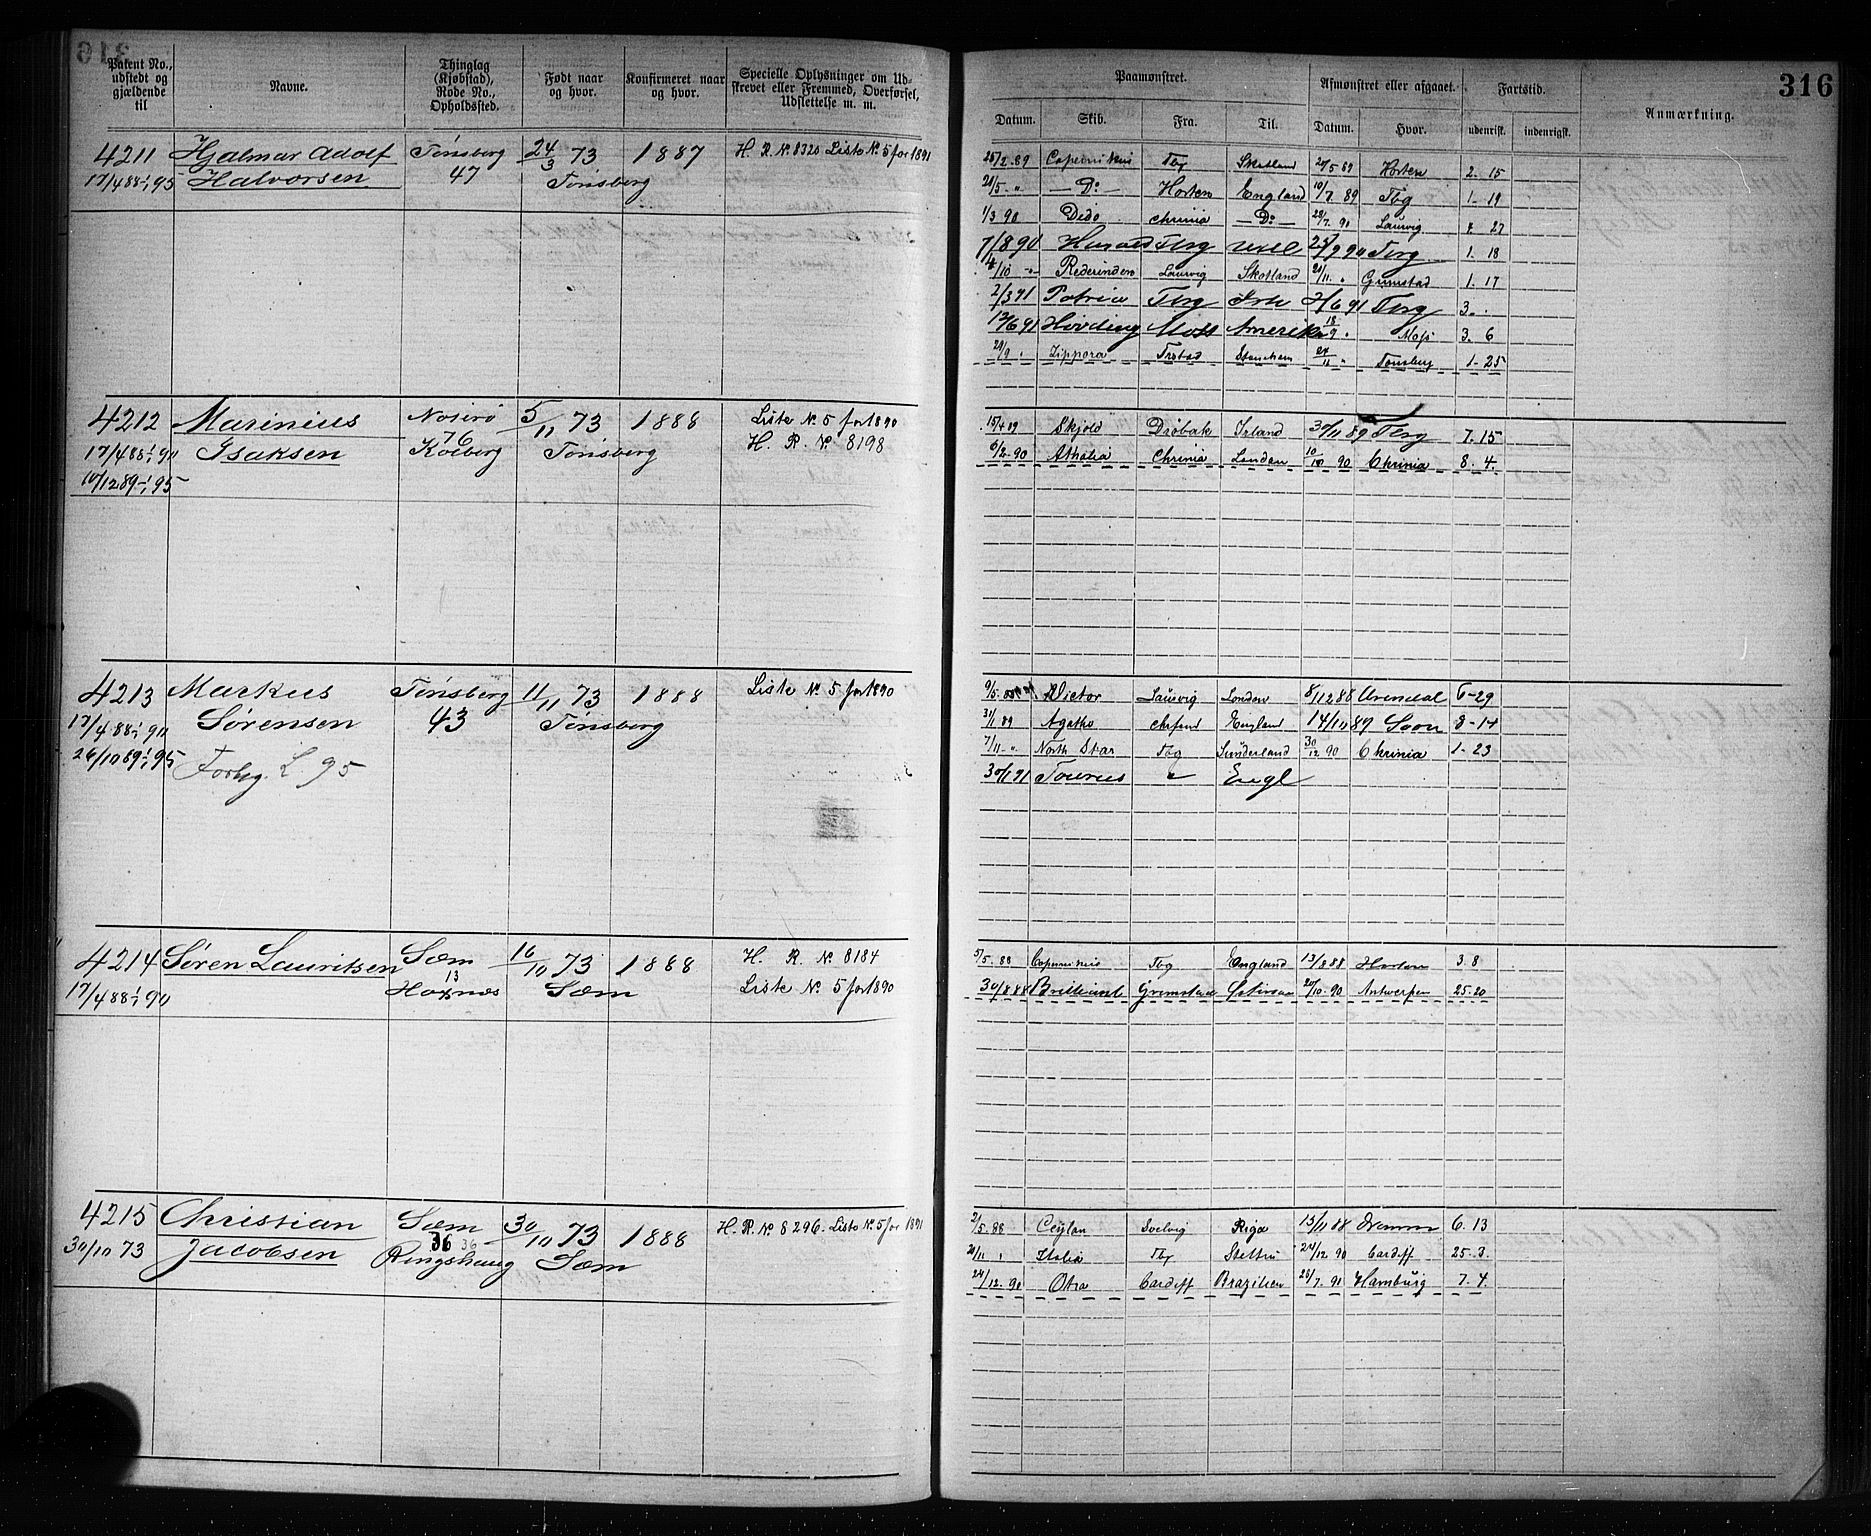 316
Patent No., udstedt og gjældende til
Navne.
Thinglag (Kjøbstad), Rode No., Opholdssted.
Født naar og hvor.
Konfirmeret naar og hvor.
Specielle Oplysninger om Udskrevet eller Fremmed, Overførsel, Udslettelse m. m.
Paamønstret.
Afmønstret eller afgaaet.
Fartstid.
Anmærkning.
Datum. Skib. Fra. Til. Datum. Hvor. udenrigsk. indenrigsk.
4211 Hjalmar Adolf Tønsberg 24/3 73 1887 H. R. No 8320 Liste No. 5 for 1891
17/4 88-1/1 95 Halvorsen 47 Tønsberg
25/2 89 Copernikus Tbg Skotland 20/5 89 Horten 2. 15
20/5 „ Do Horten England 10/7 89 Tbg 1- 19
1/3 90 Dido chrinia Do 28/7 90 Laurvig 4 27
7/8 90 Harald Tbrg 25/9 90 Tbrg 1. 18
4/10 „ Rederinden Laurvig Skotland 21/11 „ Grimstad 1. 17
2/3 91 Patria Tbrg 2/6 91 Tbrg 3. .
12/6 91 Høvding Moss Amerika 18/9 „ Moss 3. 6
29/9 „ Zippora Frstad 24/11 „ Tønsberg 1- 25
4212 Marinius Nøterø 5/11 73 1888 Liste No. 5 for 1890
17/4 88-1/1 90 Isaksen 76 Kolberg Tønsberg H. R. No 8198
10/12 89-1/1 95
15/4 89 Skjold Drøbak Irland 30/11 89 Tbrg 7. 15
6/2 90 Athalia Chrinia London 10/10 90 Chrinia 8. 4.
4213 Markus Tønsberg 11/11 73 1888 Liste No. 5 for 1890
17/4 88-1/1 90 Sørensen 43 Tønsberg
26/10 89-1/1 95 L. 95
9/5 Victor Laurvig London 8/12 88 Arendal 6-29
31/1 89 Agatha England 14/10 89 Soon 8-14
7/11 „ North Star Tbg Sunderland 30/12 90 Chrinia 1- 23
30/1 91 Taurus „ Engl
4214 Søren Lauritsen Sæm 16/10 73 1888 H. R. No 8184
17/4 88-1/1 90 13 Haxnæs Sæm Liste No. 5 for 1890
5/5 88 Copernikus Tbg England 13/8 88 Horten 3. 8
30/8 88 Brilliant Grimstad 20/10 90 Antwerpen 25-20
4215 Christian Sæm 30/10 73 1888 H. R. No 8296. Liste No. 5 for 1891
30/10 73 Jacobsen 36 36 Ringshaug Sæm
2/5 88 Ceylan Svelvig Riga 13/11 88 Drammen 6. 13
20/11 „ Italia Tbg Stettin 24/12 90 Cardiff 25. 3.
24/12. 90 Otra Cardiff Brazilien 28/7. 91 Hamburg 7. 4.